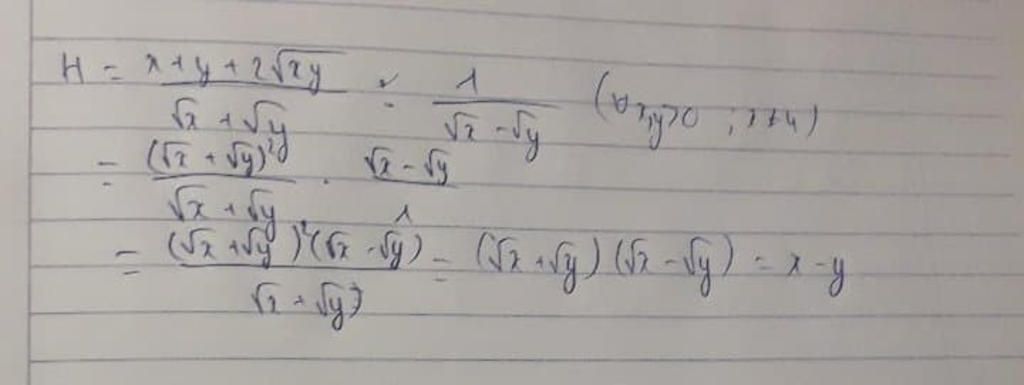 H = \frac{x+y+2\sqrt{xy}}{\sqrt{x}+\sqrt{y}} : \frac{1}{\sqrt{x}-\sqrt{y}} (∀x,y>0; x≠y)
= \frac{(\sqrt{x}+\sqrt{y})^2}{\sqrt{x}+\sqrt{y}} . \frac{\sqrt{x}-\sqrt{y}}{1}
= \frac{(\sqrt{x}+\sqrt{y})^2(\sqrt{x}-\sqrt{y})}{\sqrt{x}+\sqrt{y}} = (\sqrt{x}+\sqrt{y})(\sqrt{x}-\sqrt{y}) = x-y